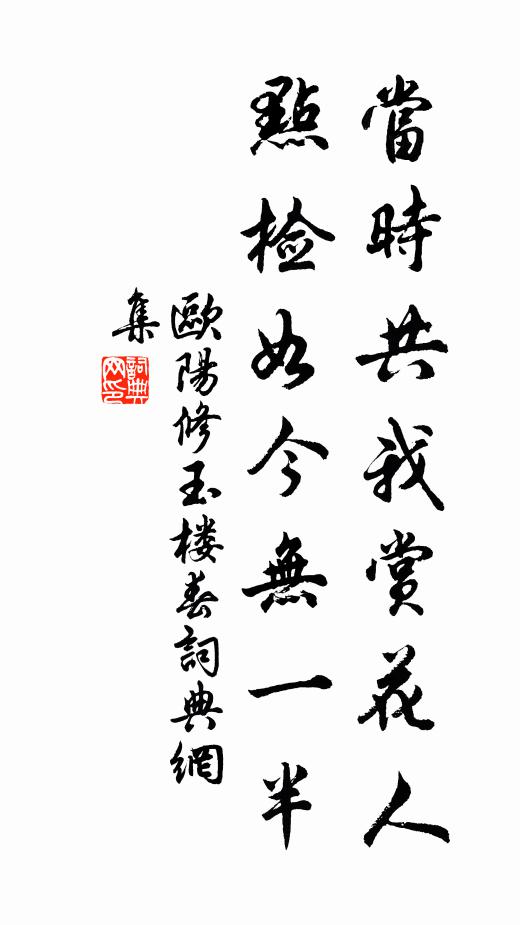 當時共我賞花人
點檢如今無一半
歐陽修玉楼春詞典網
集
詞典
网印